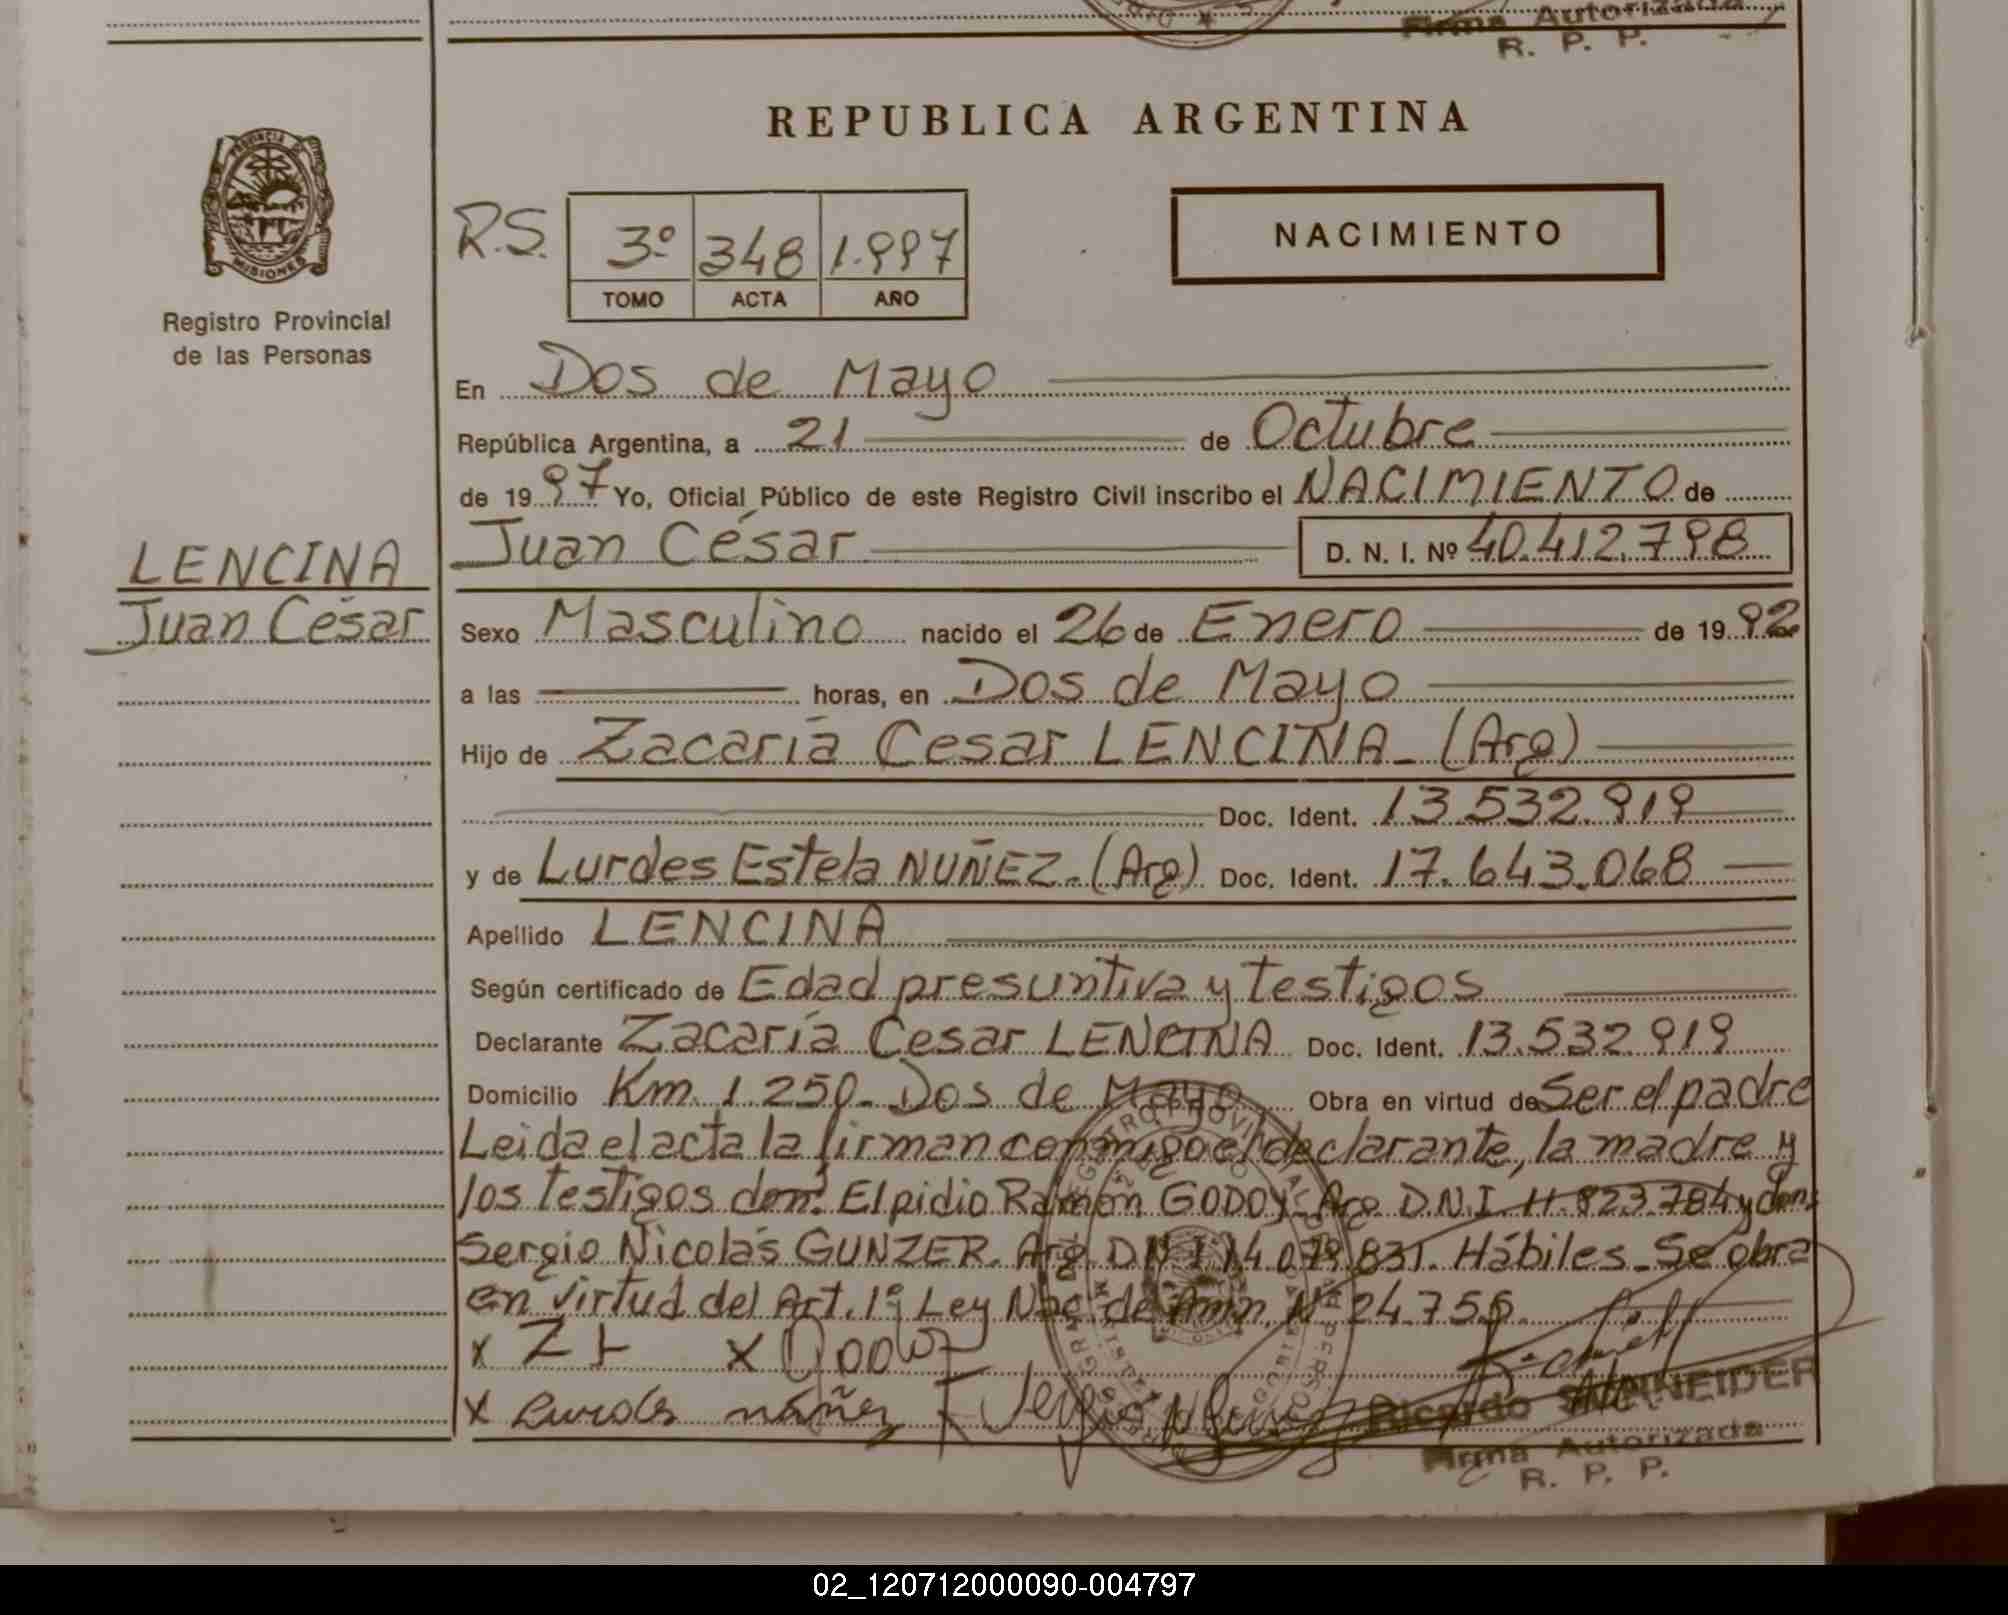 Firma Autorizada
R. P. P.
REPUBLICA ARGENTINA
PROVINCIA DE
MISIONES
Registro Provincial
de las Personas
R.S. 3º 348 1.997
TOMO ACTA AÑO
NACIMIENTO
En Dos de Mayo
República Argentina, a 21 de Octubre
de 1997 Yo, Oficial Público de este Registro Civil inscribo el NACIMIENTO de
Juan César D. N. I. Nº 40.412.798
LENCINA
Juan César
Sexo Masculino nacido el 26 de Enero de 1992
a las horas, en Dos de Mayo
Hijo de Zacaría Cesar LENCINA - (Arg)
Doc. Ident. 13.532.919
y de Lurdes Estela NUÑEZ - (Arg) Doc. Ident. 17.643.068
Apellido LENCINA
Según certificado de Edad presuntiva y testigos
Declarante Zacaría Cesar LENCINA Doc. Ident. 13.532.919
Domicilio Km. 1.250 - Dos de Mayo Obra en virtud de Ser el padre
Leida el acta la firman conmigo el declarante, la madre y
los testigos don: Elpidio Ramón GODOY - Arg D.N.I. 11.823.784 y don:
Sergio Nicolás GUNZER. Arg. D.N.I 14.079.831. Hábiles - Se obra
en virtud del Art. 1º Ley Nac. de Amn. Nº 24.755.
x x
x Lurdes nuñez
Ricardo SCHNNEIDER
Firma Autorizada
R. P. P.
02_120712000090-004797